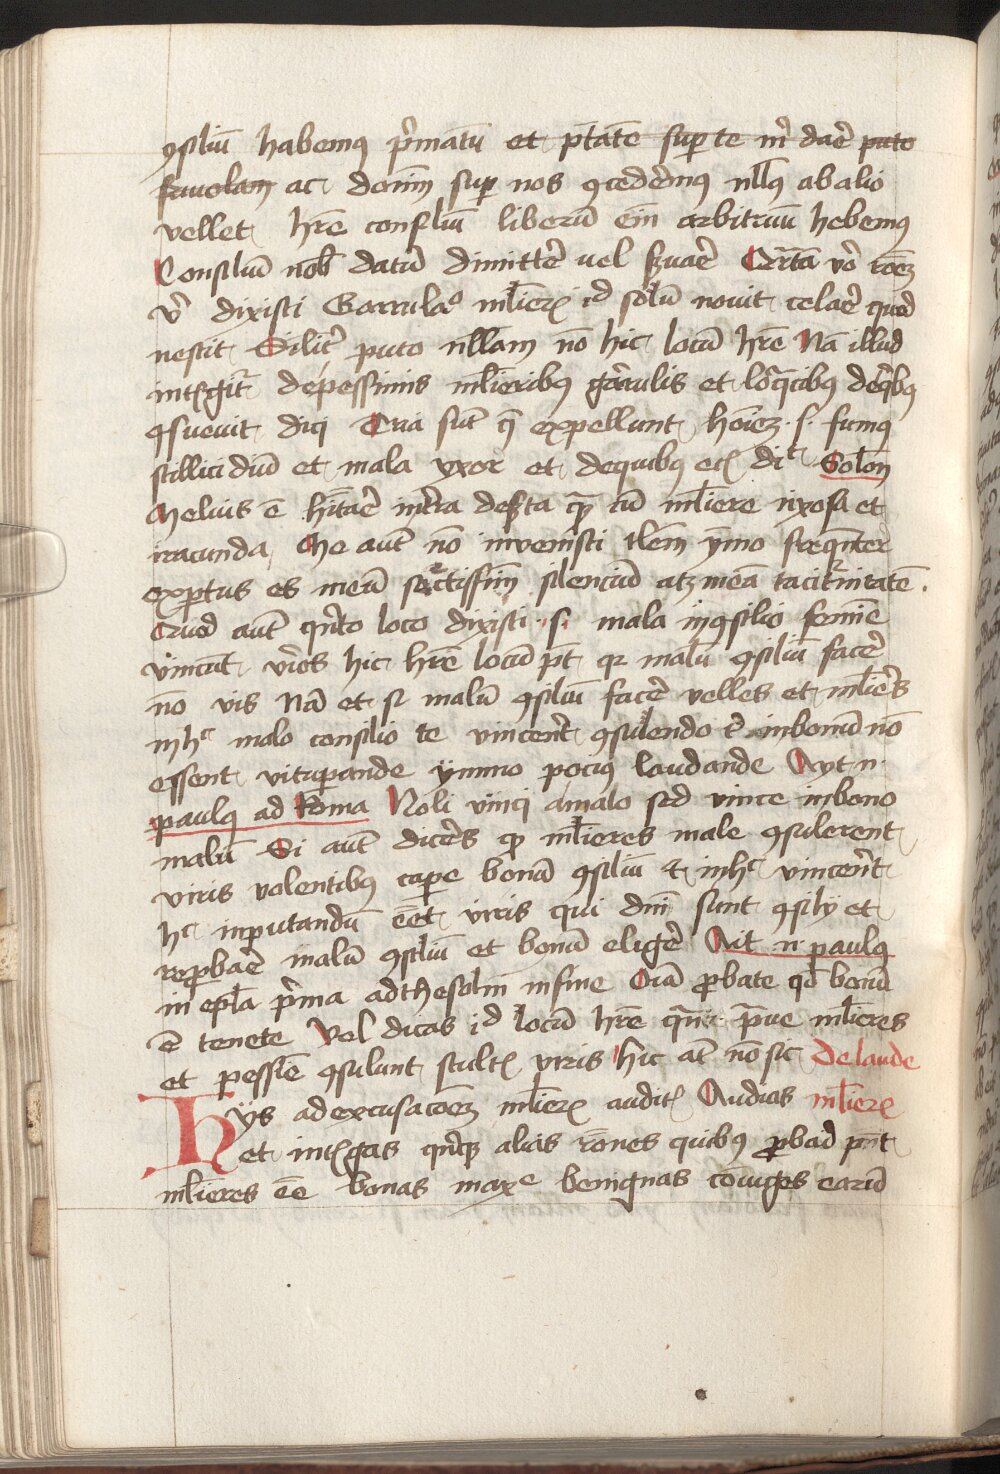 ɔsiliū habemꝰ p̄matū et p̄tatē suꝑ te nr̄ daē̄ puto
fauolam ac donim̄ suꝑ nos ɔcederemꝰ nllꝰ ab alio
vellet hr̄e consiliū liberū em̄ arbitriū hebemus
Consiliū nob̄ datū dimitter̄ uel ẜuar̄ Qr̄tā vo̊ roēz
vr̄ dixisti Garrulaꝰ ml̄ieꝝ id solū nouit celar̄ quod
nescit Silit̄ puto nllam nō hic locū hr̄e Nā illud
intꝭgit̄ de pessimis ml̄ieribꝰ garulis et loqͣcibꝰ de qͥbꝰ
ɔsueuit dici Tria sūt q̄ expellunt hoīez .s. fumꝰ
stillicidiū et mala vxor et de quibꝰ ecꝭ dit Solon
Melius ē hītar̄ in tr̄a deẜta qͣ cū ml̄iere rixosa et
iracunda Me aut̄ nō inuenisti tlem̄ ymo freqn̄ter
expertus es meū sectissim̄ silenciū atz meā tacitͬnitatē.
Quod aut̄ qͣrto loco dixisti .s. mala in ɔsilio femine
vincūt viros hic hr̄e locū pt̄ qꝛ malū ɔsiliū facer̄
nō vis Nā et si malū ɔsiliū facer̄ velles et ml̄ier̄s
in hͦ malo consilio te vincent̄ ɔsulendo t̄ in bonū nō
essent vituperande ymmo pociꝰ laudande Ayt n.
paulꝰ ad Roma Noli vinci a malo sed vince in bono
malū Si aut̄ dicer̄s ꝙ ml̄ieres male ɔsulerent
viris volentibꝰ cape bonū ɔsiliū ⁊ in hͦ vincent̄
hͦ inputandū eēt viris qui dn̄i sunt ɔsilij et
reꝓbaē̄ malū ɔsiliū et bonū eliger̄ Ait n. paulꝰ
in epl̄a p̄ma ad thesolin in fine Oīa ꝓbate qd̄ bonū
ē tenete Vel dicas id locū hr̄e qn̄ p̄ue ml̄ieres
et pessīe ɔsulunt stultꝭ viris hic at̄ nō sic De laude
Hys ad excusacōez ml̄ieꝝ auditꝭ Audias ml̄ieꝝ
et intꝭgas qn̄qꝫ alias rōnes quibꝰ ꝓbad pn̄t
ml̄ieres eē bonas maxe benignas cōiuges earū